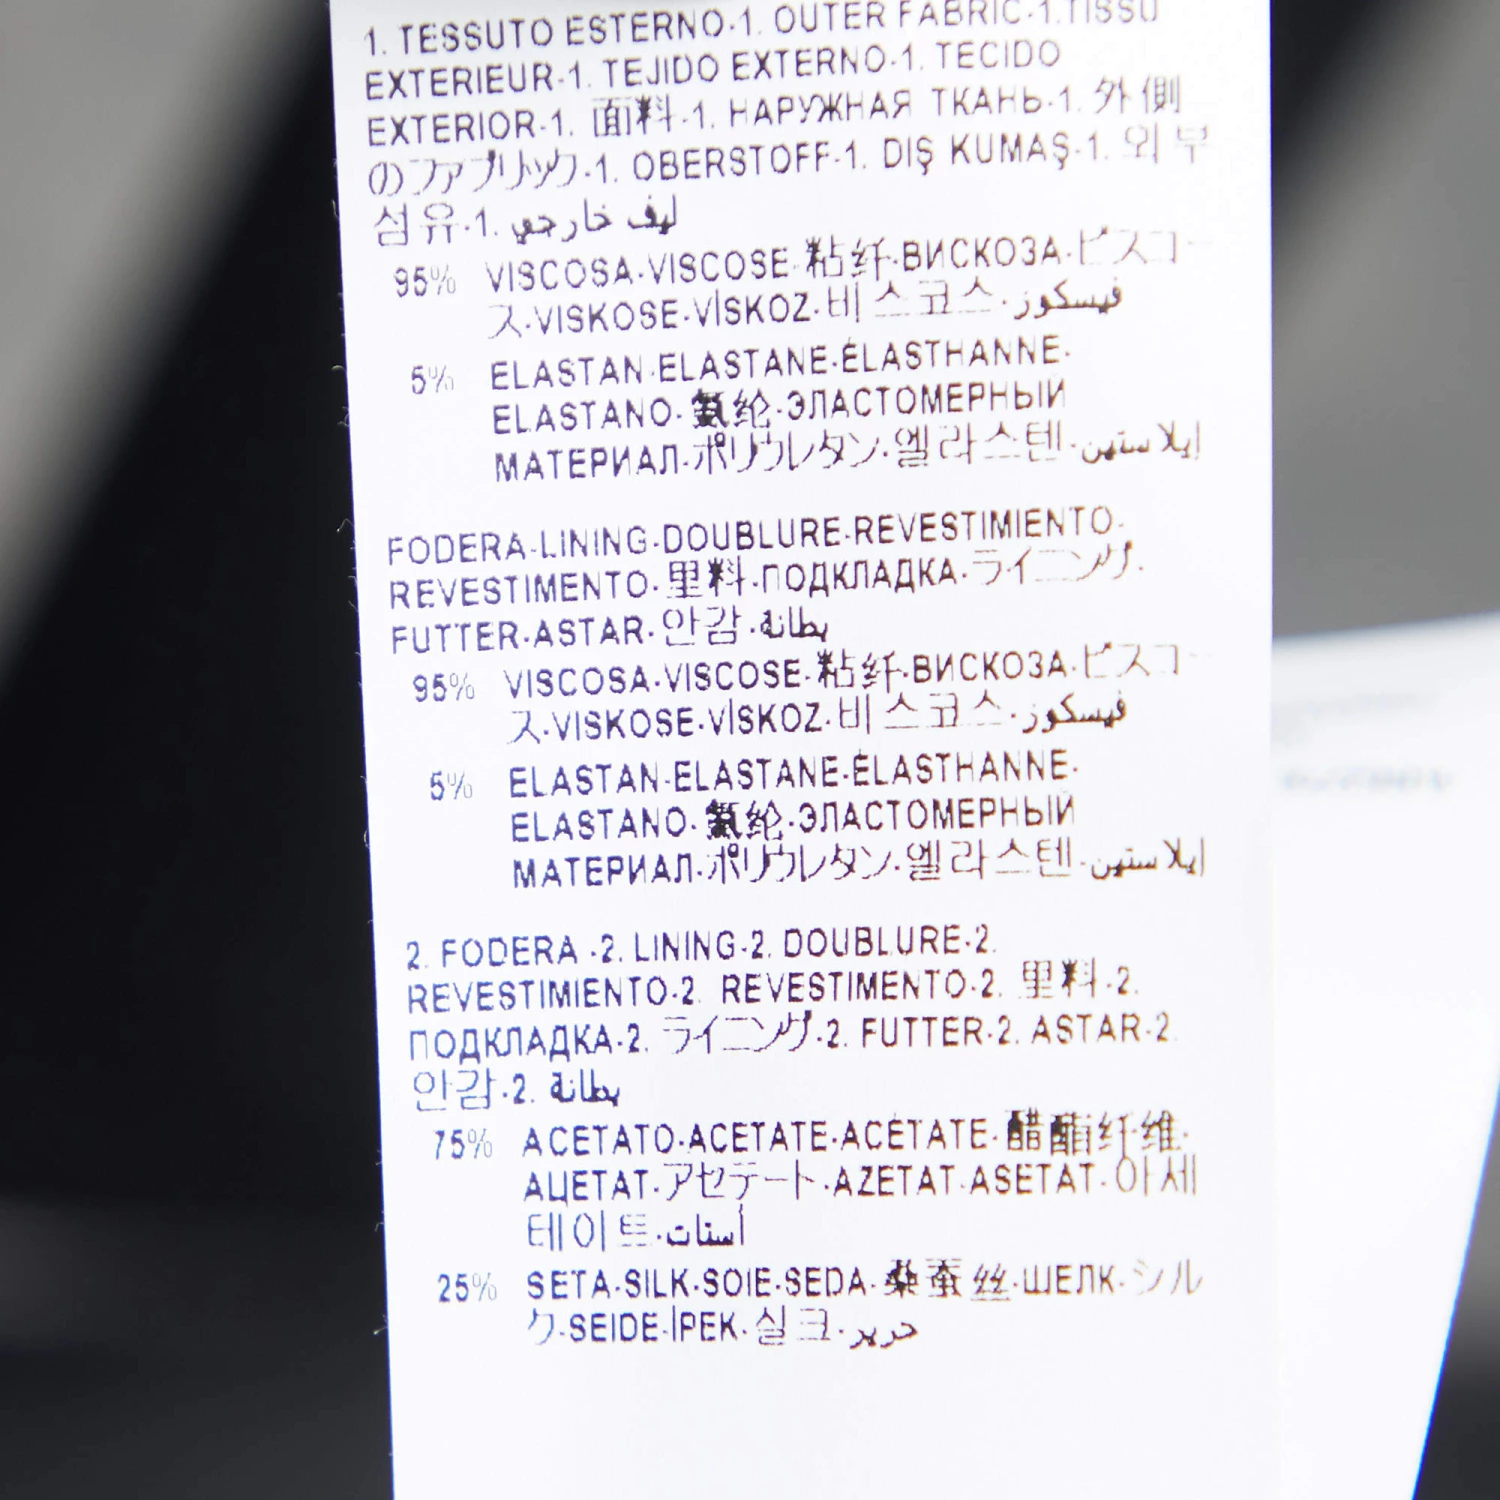 1. TESSUTO ESTERNO·1. OUTER FABRIC·1.TISSU
EXTERIEUR·1. TEJIDO EXTERNO·1. TECIDO
EXTERIOR·1. 面料·1. НАРУЖНАЯ ТКАНЬ·1. 外側
のファブリック·1. OBERSTOFF·1. DIŞ KUMAŞ·1. 외부
섬유·1. ليف خارجي
95% VISCOSA·VISCOSE·粘纤·ВИСКОЗА·ビスコー
ス·VISKOSE·VİSKOZ·비스코스·فيسكوز
5% ELASTAN·ELASTANE·ÉLASTHANNE·
ELASTANO·氨纶·ЭЛАСТОМЕРНЫЙ
МАТЕРИАЛ·ポリウレタン·엘라스텐·إيلاستين
FODERA·LINING·DOUBLURE·REVESTIMIENTO·
REVESTIMENTO·里料·ПОДКЛАДКА·ライニング·
FUTTER·ASTAR·안감·بطانة
95% VISCOSA·VISCOSE·粘纤·ВИСКОЗА·ビスコー
ス·VISKOSE·VİSKOZ·비스코스·فيسكوز
5% ELASTAN·ELASTANE·ÉLASTHANNE·
ELASTANO·氨纶·ЭЛАСТОМЕРНЫЙ
МАТЕРИАЛ·ポリウレタン·엘라스텐·إيلاستين
2. FODERA ·2. LINING·2. DOUBLURE·2.
REVESTIMIENTO·2. REVESTIMENTO·2. 里料·2.
ПОДКЛАДКА·2. ライニング·2. FUTTER·2. ASTAR·2.
안감·2. بطانة
75% ACETATO·ACETATE·ACÉTATE·醋酯纤维·
АЦЕТАТ·アセテート·AZETAT·ASETAT·아세
테이트·أستات
25% SETA·SILK·SOIE·SEDA·桑蚕丝·ШЕЛК·シル
ク·SEIDE·İPEK·실크·حرير